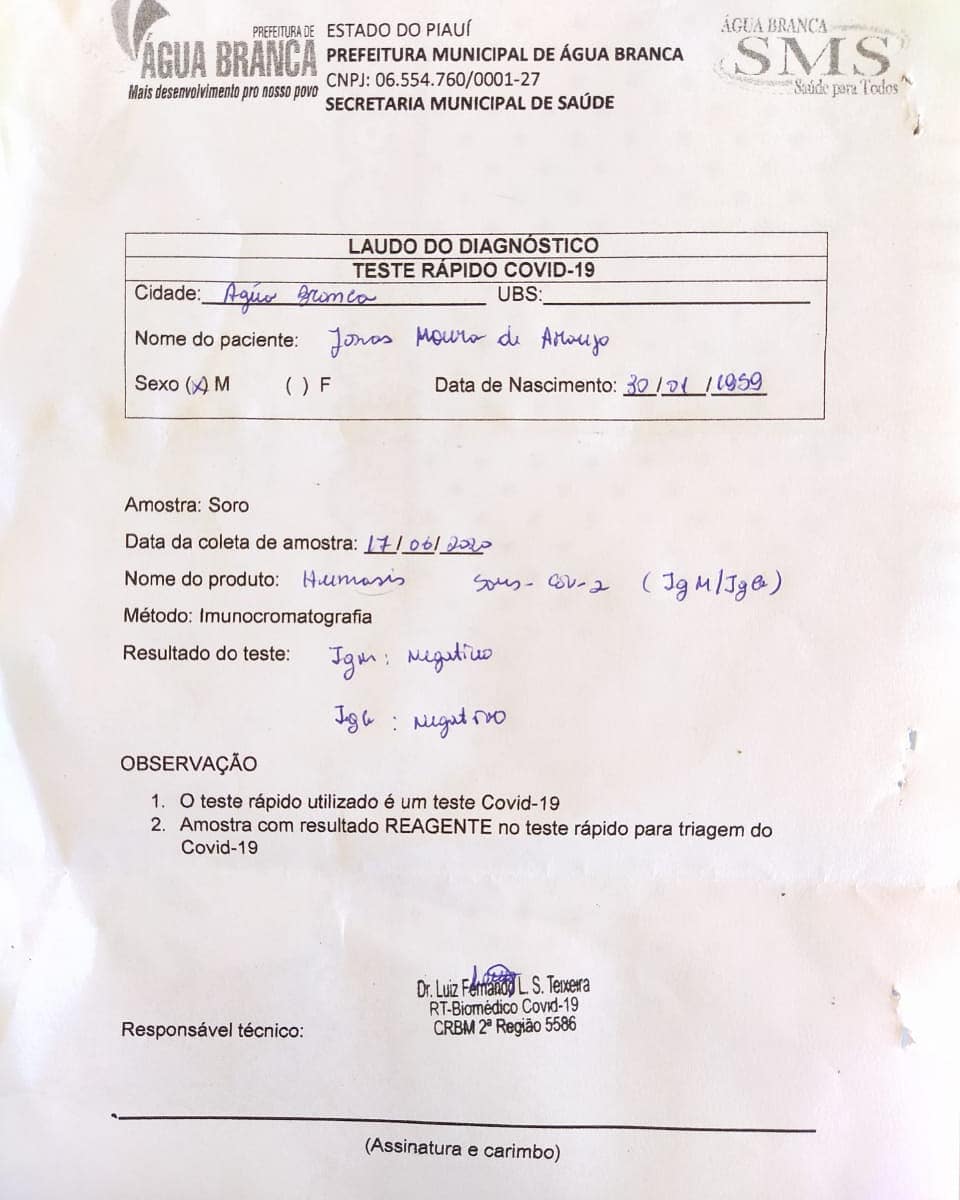 PREFEITURA DE
ÁGUA BRANCA
Mais desenvolvimento pro nosso povo
ESTADO DO PIAUÍ
PREFEITURA MUNICIPAL DE ÁGUA BRANCA
CNPJ: 06.554.760/0001-27
SECRETARIA MUNICIPAL DE SAÚDE
ÁGUA BRANCA
SMS
Saúde para Todos
LAUDO DO DIAGNÓSTICO
TESTE RÁPIDO COVID-19
Cidade: Agua Branca UBS:
Nome do paciente: Jonas Moura de Araujo
Sexo (x) M ( ) F Data de Nascimento: 30/01/1959
Amostra: Soro
Data da coleta de amostra: 17/06/2020
Nome do produto: Humasis Sars-Cov-2 (IgM/IgG)
Método: Imunocromatografia
Resultado do teste: Igm: Negativo
IgG: Negativo
OBSERVAÇÃO
1. O teste rápido utilizado é um teste Covid-19
2. Amostra com resultado REAGENTE no teste rápido para triagem do
Covid-19
Dr. Luiz Fernando L. S. Teixeira
RT-Biomédico Covid-19
CRBM 2ª Região 5586
Responsável técnico:
(Assinatura e carimbo)